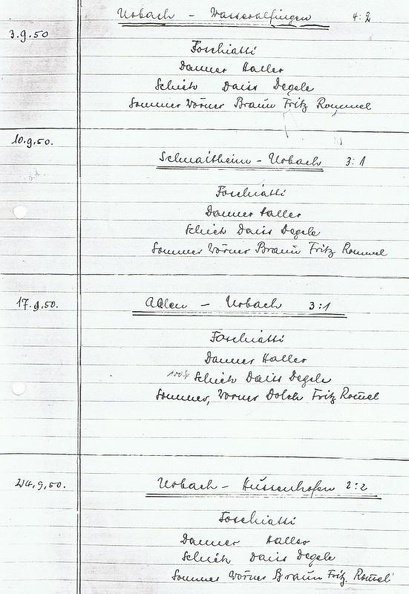 3.9.50
Urbach - Wasseralfingen 4:2
Foschiatti
Danner Haller
Schiek Daiss Degele
Sommer Wörner Braun Fritz Rommel
10.9.50.
Schnaitheim - Urbach 3:1
Foschiatti
Danner Haller
Schiek Daiss Degele
Sommer Wörner Braun Fritz Rommel
17.9.50.
Aalen - Urbach 3:1
Foschiatti
Danner Haller
Schiek Daiss Degele
Sommer, Wörner Dolch Fritz Rom̅el
24.9.50.
Urbach - Hussenhofen 2:2
Foschiatti
Danner Haller
Schiek Daiss Degele
Sommer Wörner Braun Fritz Rom̅el